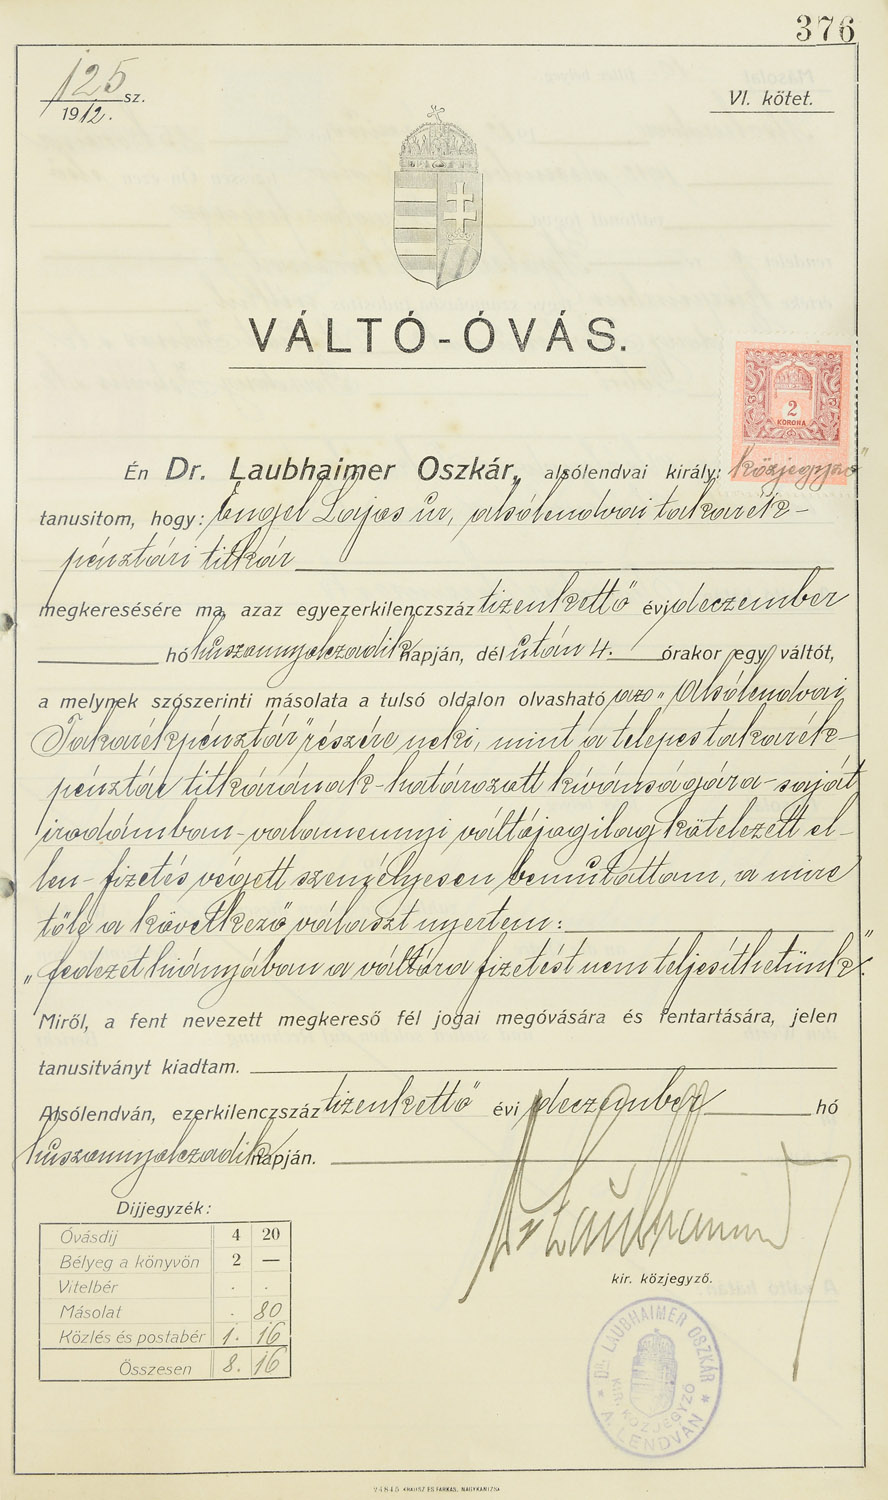 376
125 sz.
1912.
VI. kötet.
VÁLTÓ-ÓVÁS.
2
KORONA
Én Dr. Laubhaimer Oszkár, alsólendvai király: közjegyző
tanusitom, hogy: Engel Lajos úr, alsólendvai takarék-
pénztári titkár
megkeresésére ma, azaz egyezerkilenczszáz tizenkettő évi deczember
hó huszonnyolczadik napján, dél után 4. órakor egy váltót,
a melynek szószerinti másolata a tulsó oldalon olvasható, az „Alsólendvai
Takarékpénztár" részére neki, mint a telepes takarék-
pénztár titkárának - határozott kivánságára - saját
irodámban - valamennyi váltójogilag kötelezett el-
len - fizetés végett személyesen bemutattam, a mire
tőle a következő választ nyertem:
„fedezet hiányában a váltóra fizetést nem teljesíthetünk."
Miről, a fent nevezett megkereső fél jogai megóvására és fentartására, jelen
tanusitványt kiadtam.
Alsólendván, ezerkilenczszáz tizenkettő évi deczember hó
huszonnyolczadik napján.
Dr Laubhaimer
kir. közjegyző.
Dijjegyzék:
Óvásdij 4 20
Bélyeg a könyvön 2 —
Vitelbér . .
Másolat . 80
Közlés és postabér 1. 16
Összesen 8. 16
DR. LAUBHAIMER OSZKÁR
KIR. KÖZJEGYZŐ
* A. LENDVÁN *
24845 KRAUSZ ÉS FARKAS, NAGYKANIZSA